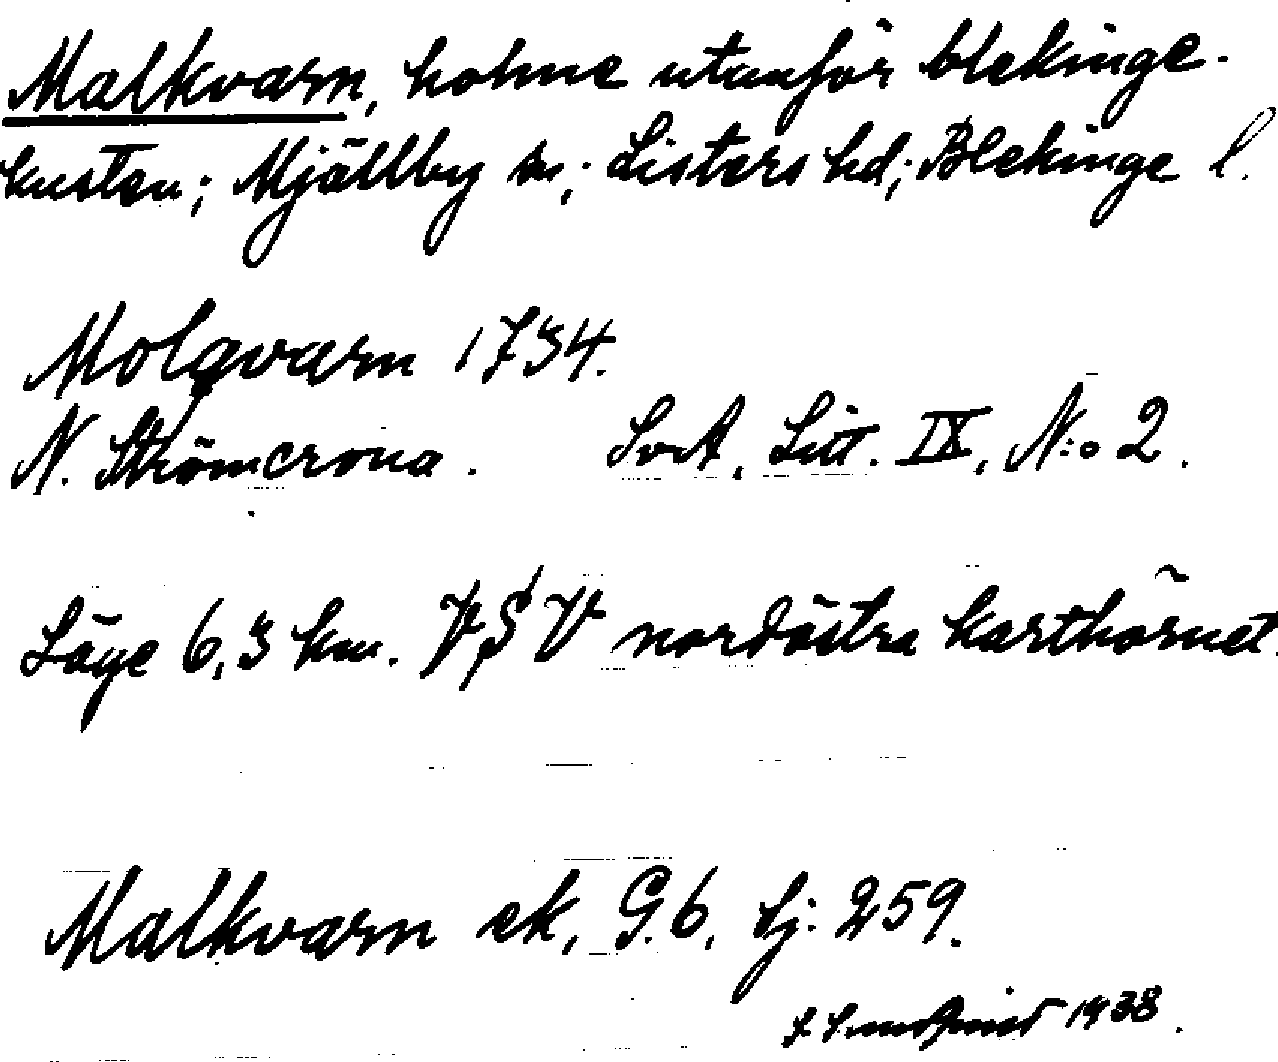 Malkvarn, holme utanför Blekinge-
kusten; Mjällby sn; Listers hd; Blekinge l.
Molqvarn 1734.
N. Strömcrona. SvA, Litt. IX, N:o 2.
Läge 6,3 km. VSV nordöstra karthörnet.
Malkvarn ek, G.6, Sj: 259.
1938.